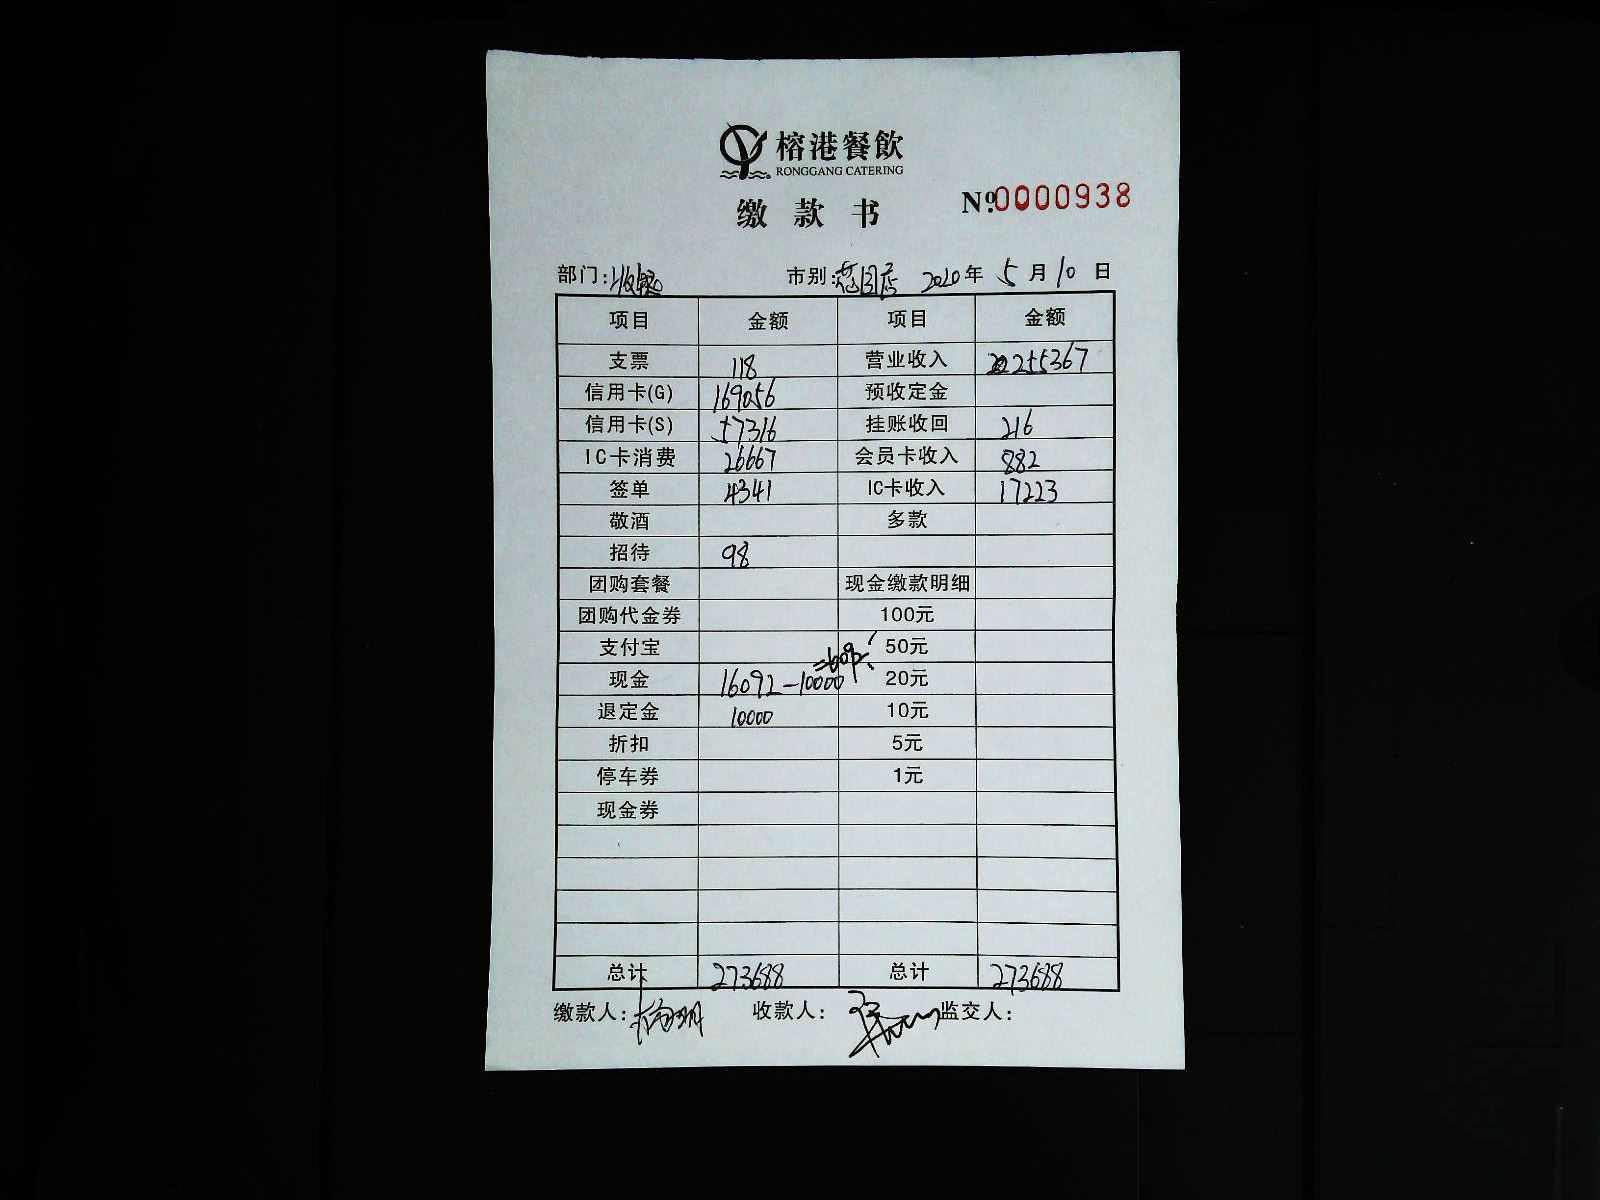 榕港餐飲
RONGGANG CATERING
缴款书 Nº0000938
部门:收银 市别:花园店 2020年 5月10日
项目 金额 项目 金额
支票 118 营业收入 255367
信用卡(G) 169056 预收定金
信用卡(S) 57316 挂账收回 216
IC卡消费 26667 会员卡收入 882
签单 4341 IC卡收入 17223
敬酒 多款
招待 98
团购套餐 现金缴款明细
团购代金券 100元
支付宝 50元
=6092
现金 16092-10000 20元
退定金 10000 10元
折扣 5元
停车券 1元
现金券
总计 273688 总计 273688
缴款人: 收款人: 监交人: